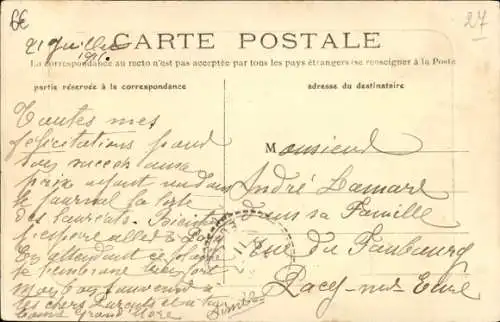 6E
27
21 Juillet
CARTE POSTALE
La correspondance au recto n'est pas acceptée par tous les pays étrangers (se renseigner à la Poste
partie réservée à la correspondance
adresse du destinataire
Toutes mes
félicitations pour
ton succès
prix ayant vu dans
le journal la liste
des lauréats. Bientôt
j'espère aller à Pacy
En attendant ce plaisir
je t'embrasse bien fort
mon bon souvenir à
tes chers Parents et à ta
bonne Grand Mère
Monsieur
André Lamare
dans sa Famille
rue du Faubourg
Pacy-sur-Eure